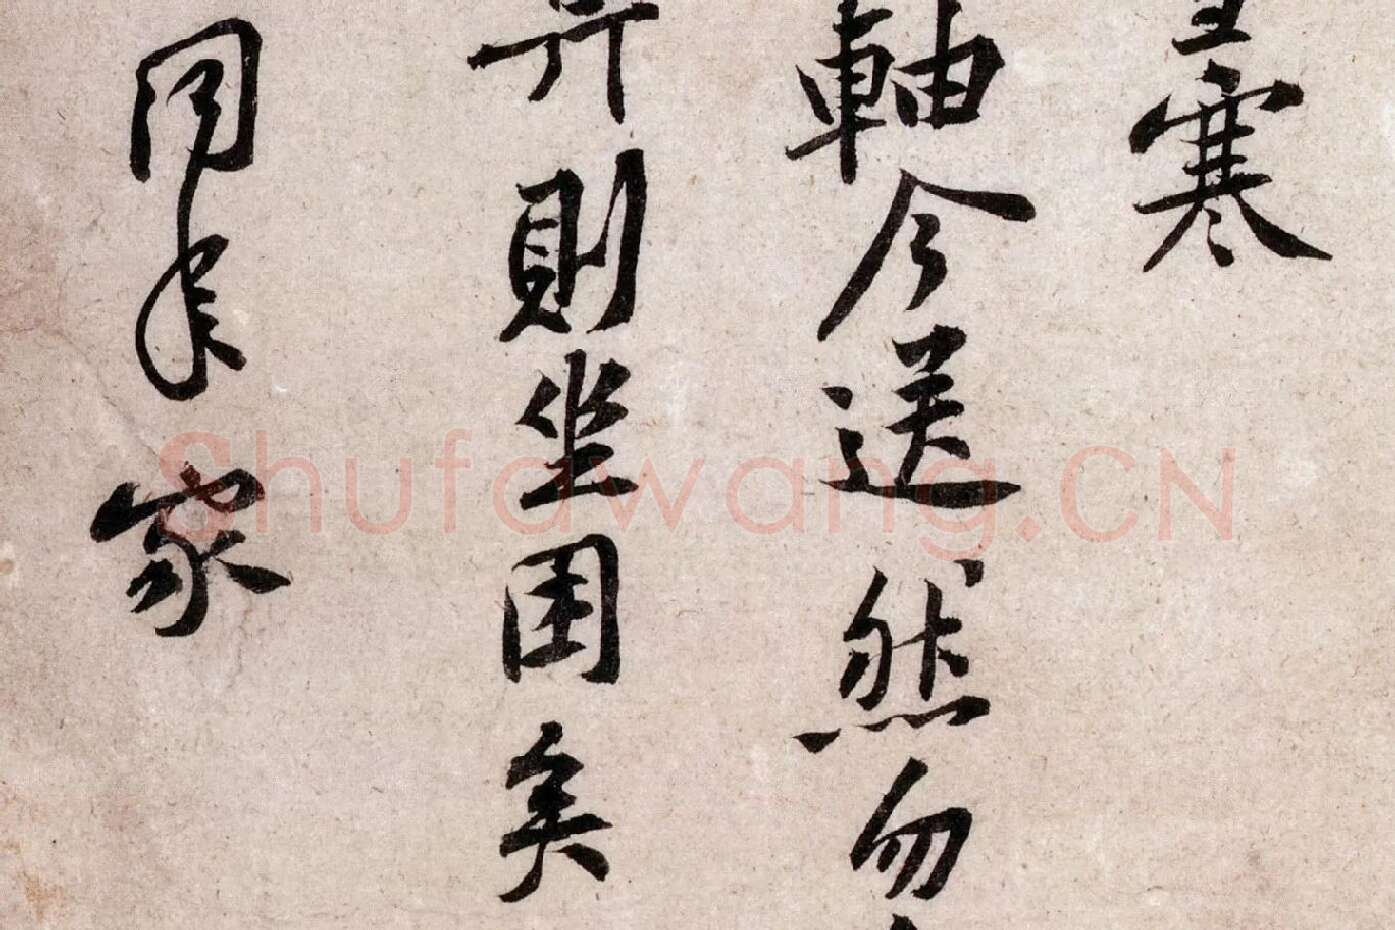 寒
軸今送然勿
則坐困矣
同年家
Shufawang.CN